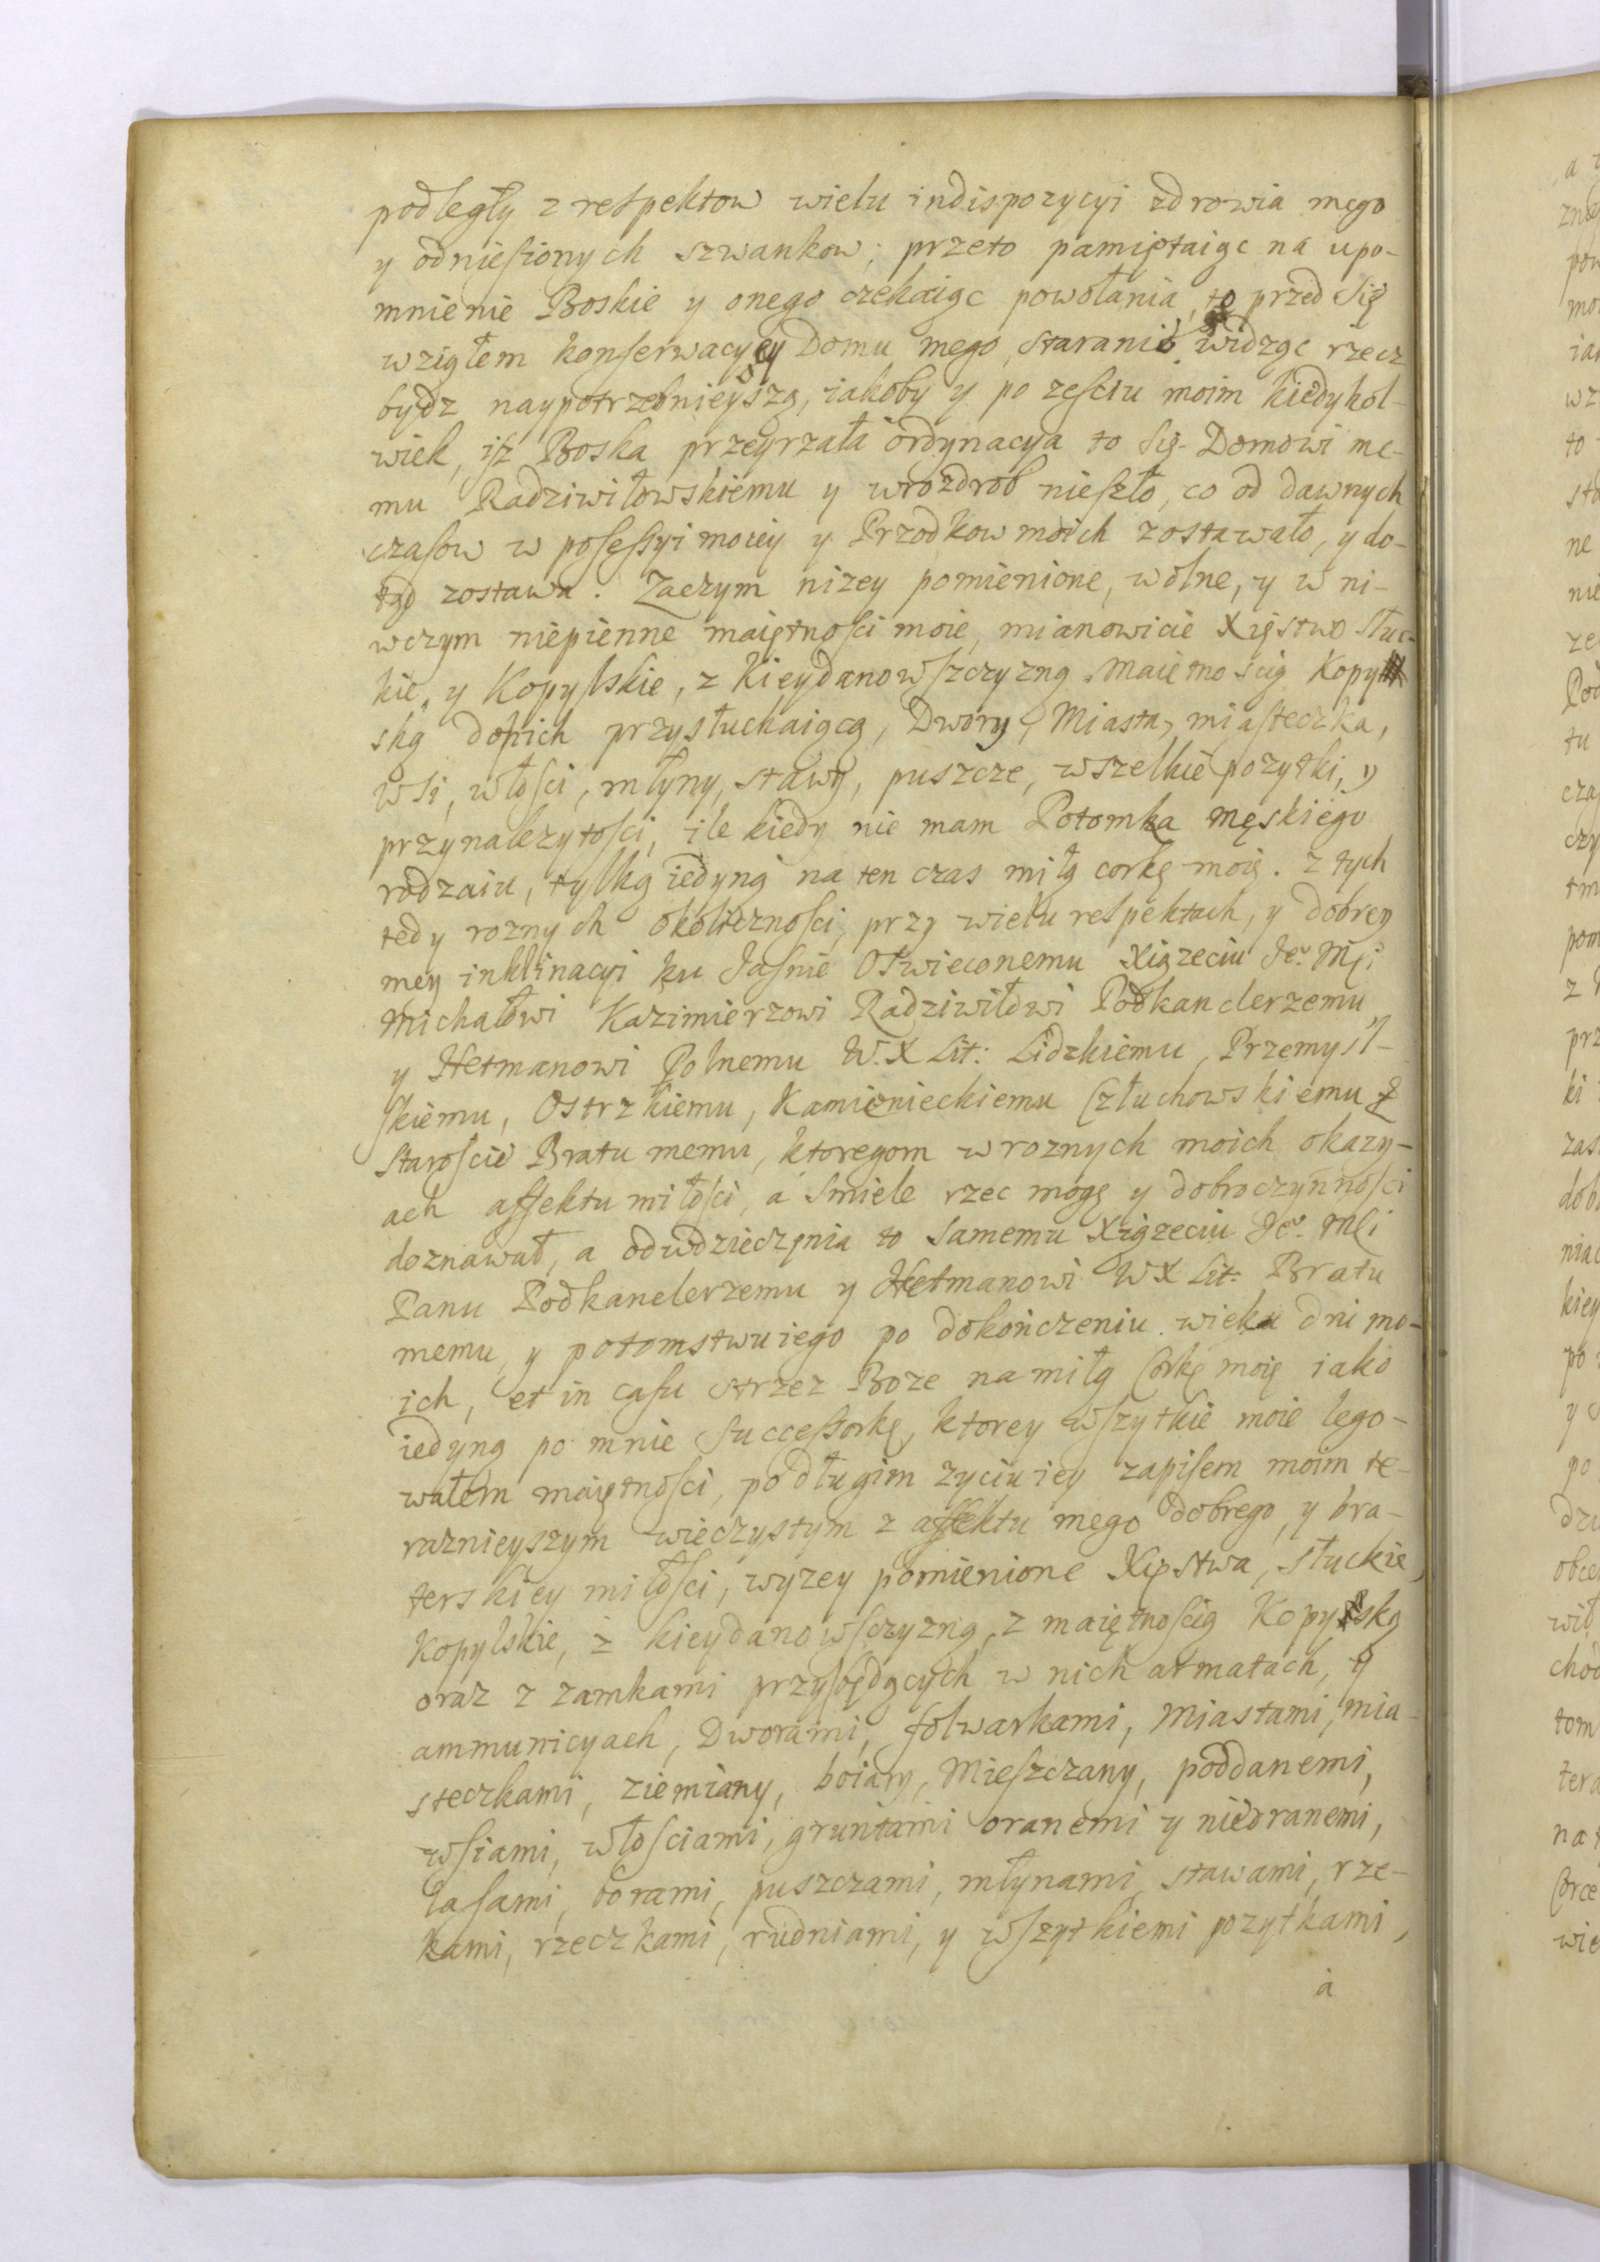 podległy z respektow wielu indispozycyi zdrowia mego
y odniesionych szwankow; przeto pamiętaiąc na upo-
mnienie Boskie y onego czekaiąc powołania, to przed się
wziąłem konserwacyey Domu mego staranie, widząc rzecz
bydz naypotrzebnieyszą, iakoby y po ześciu moim kiedykol-
wiek, isz Boska przeyrzała ordynacya to się Domowi me-
mu Radziwiłowskiemu y wrozdrob nieszło, co od dawnych
czasow w posessyi moiey y Przodkow moich zostawało, y do-
tąd zostawa. Zaczym nizey pomienione, wolne, y w ni-
wczym niepienne maiętności moie, mianowicie Xięstwo Słuc-
kie, y Kopylskie, z Kieydanowszczyzną Maiętnością Kopyl
ską do nich przysłuchaiącą, Dwory, Miasta, miasteczka,
wsi, włości, młyny, stawy, puszcze, wszelkie pozytki, y
przynalezytości, ile kiedy nie mam Potomka męskiego
rodzaiu, tylką iedyną na ten czas miłą corkę moię. z tych
tedy roznych okoliczności, przy wielu respektach, y dobrey
mey inklinacyi ku Jaśnie Oświeconemu Xiązeciu Je͞o Mci
Michałowi Kazimierzowi Radziwiłowi Podkanclerzemu
y Hetmanowi Polnemu W. X Lit: Lidzkiemu, Przemysl-
skiemu, Ostrzkiemu, Kamienieckiemu Człuchowskiemu &
Staroście Bratu memu, ktoregom w roznych moich okazy-
ach affektu miłości, a smiele rzec mogę y dobroczynności
doznawał, a odwdzieczęnia to samemu Xiązeciu Je͞o Mci
Panu Podkanclerzemu y Hetmanowi W X Lit: Bratu
memu, y potomstwu iego po dokończeniu wieku dni mo-
ich, et in casu strzez Boze na miłą Corkę moię iako
iedyną po mnie Successorkę, ktorey wszytkie moie lego-
wałem maiętności, po długim zyciu iey zapisem moim te-
raznieyszym wieczystym z affektu mego dobrego, y bra-
terskiey miłości, wyzey pomienione Xięstwa, Słuckie,
Kopylskie, z kieydanowsczyzną, z maiętnością Kopylską
oraz z zamkami przy będących w nich armatach, y
ammunicyach, Dworami, folwarkami, Miastami, mia-
steczkami, ziemiany, boiary, Mieszczany, poddanemi,
wsiami, włosciami, gruntami oranemi y nieoranemi,
lasami, borami, puszczami, młynami, stawami, rze-
kami, rzeczkami, rudniami, y wszytkiemi pozytkami,
a